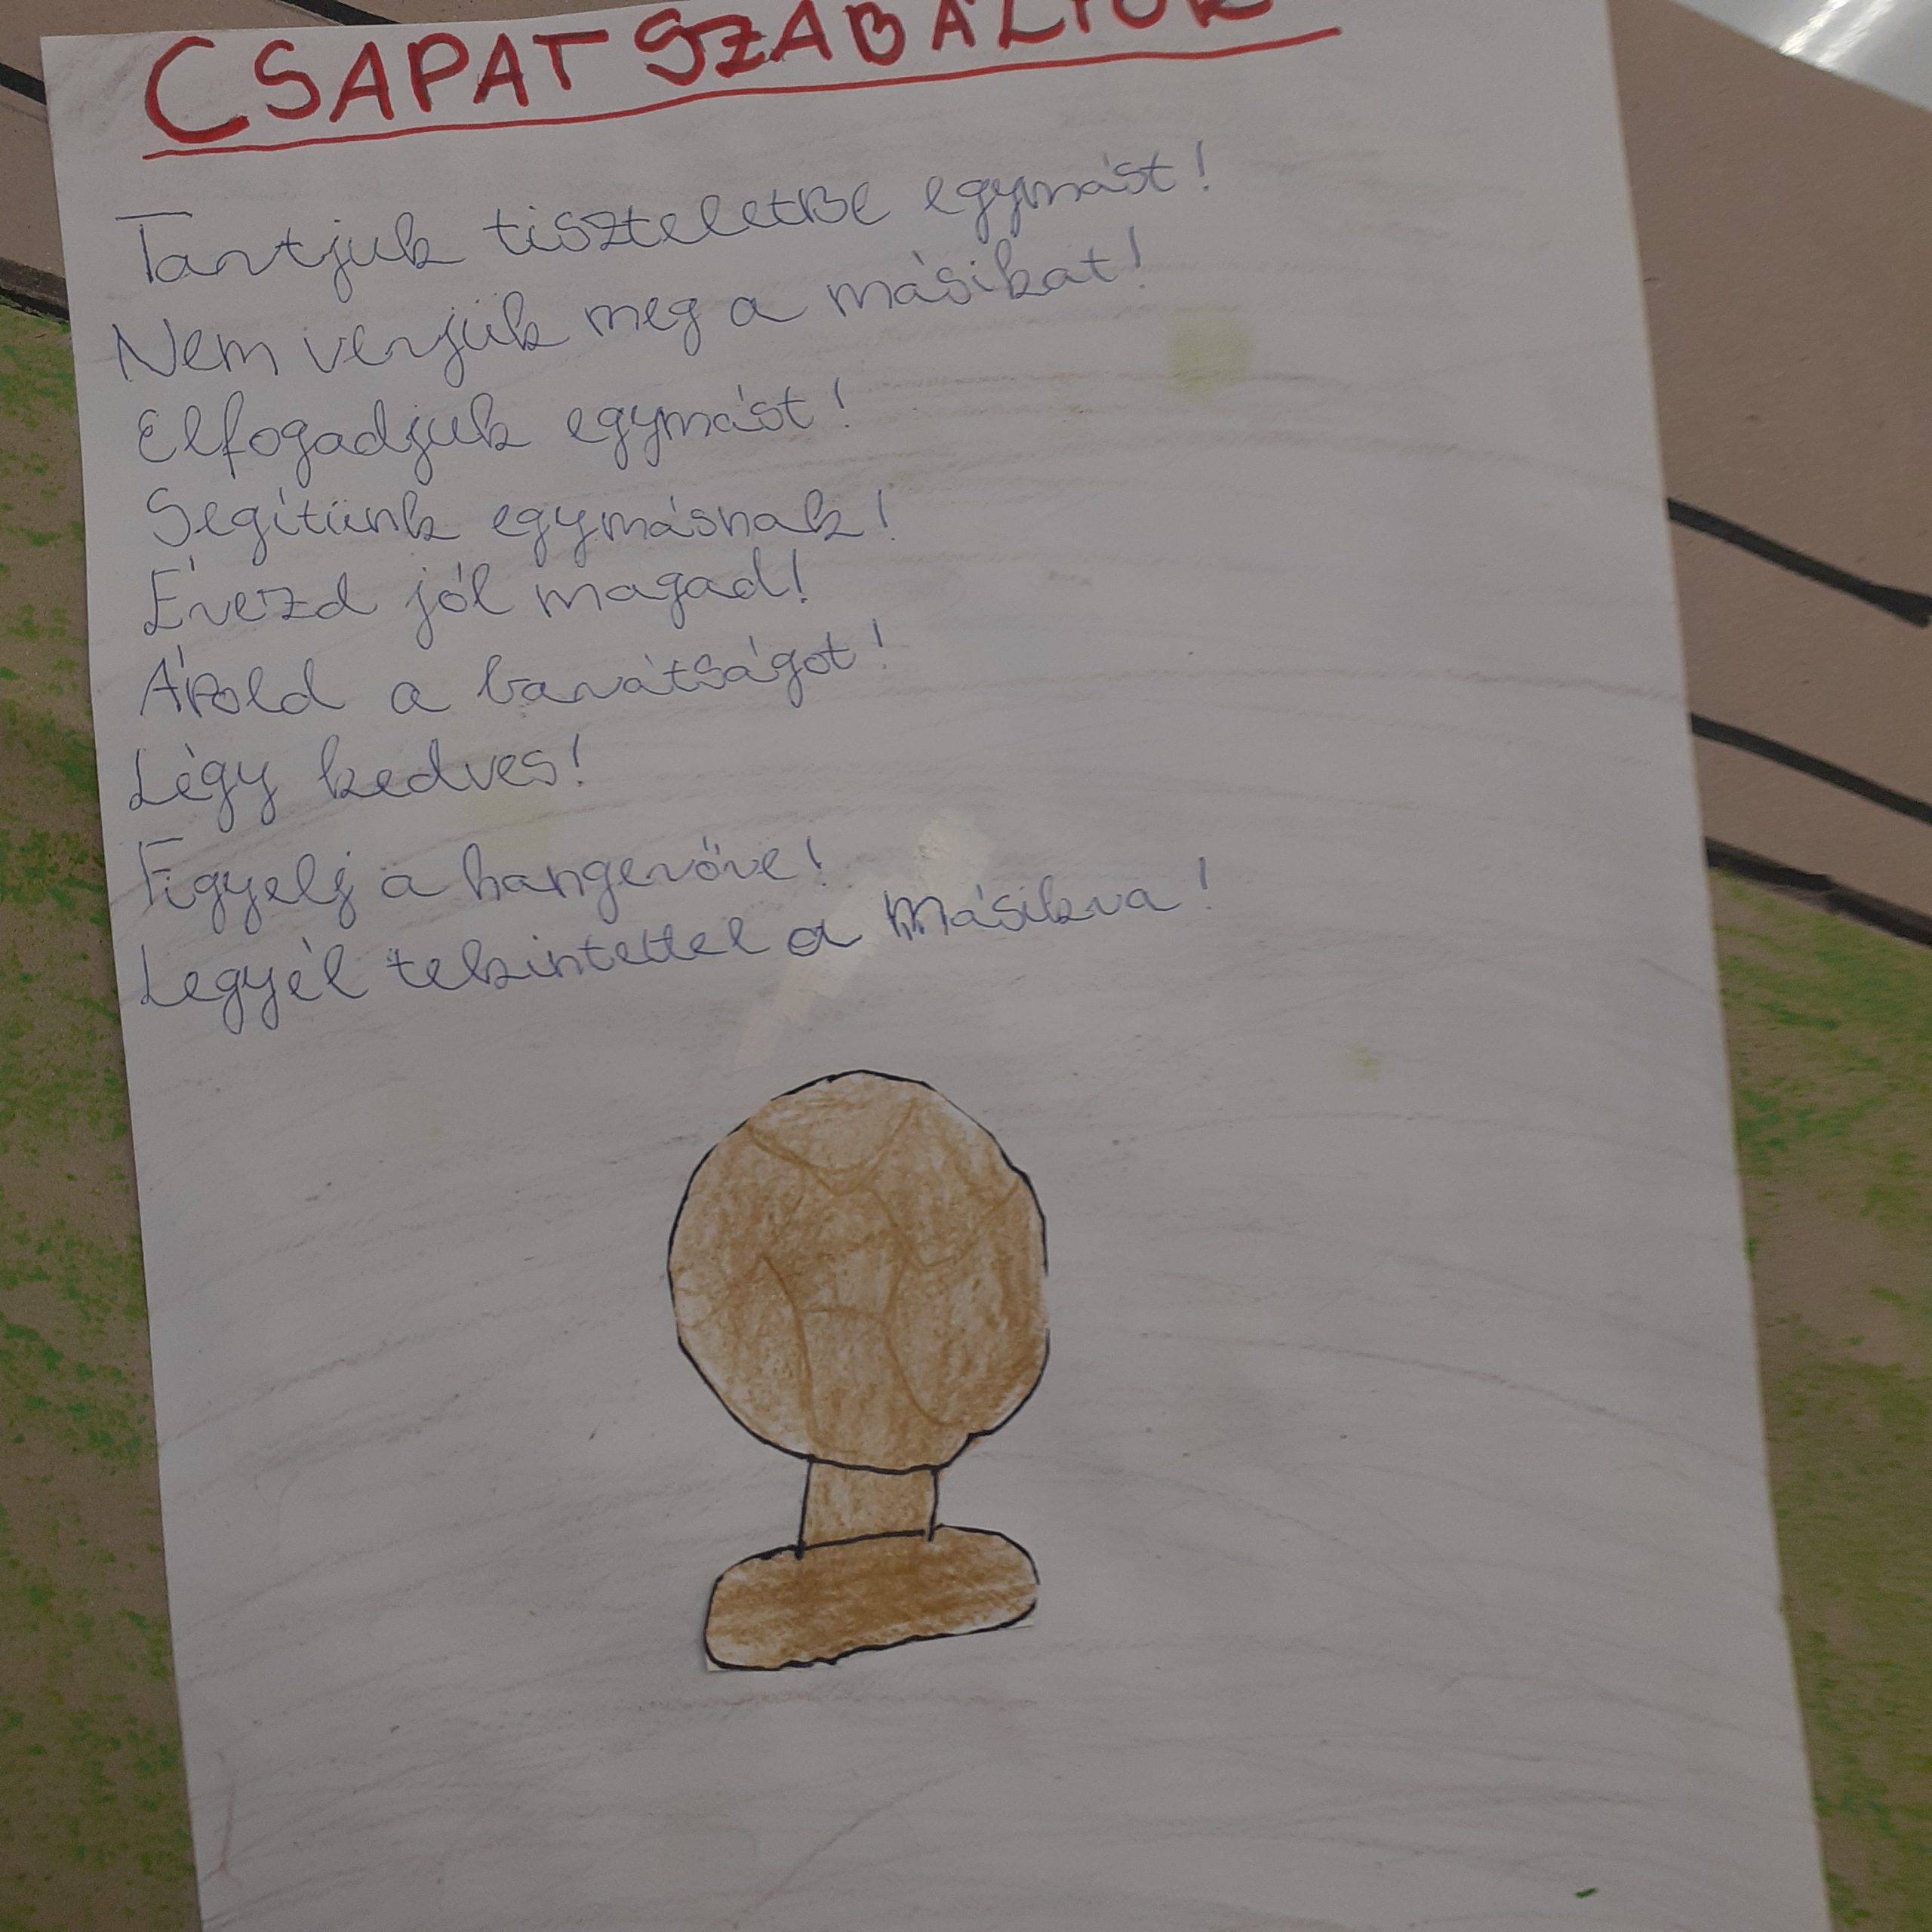 CSAPATSZABÁLYOK
Tartjuk tiszteletbe egymást!
Nem verjük meg a másikat!
Elfogadjuk egymást!
Segítünk egymásnak!
Érezd jól magad!
Ápold a barátságot!
Légy kedves!
Figyelj a hangerőre!
Legyél tekintettel a másikra!